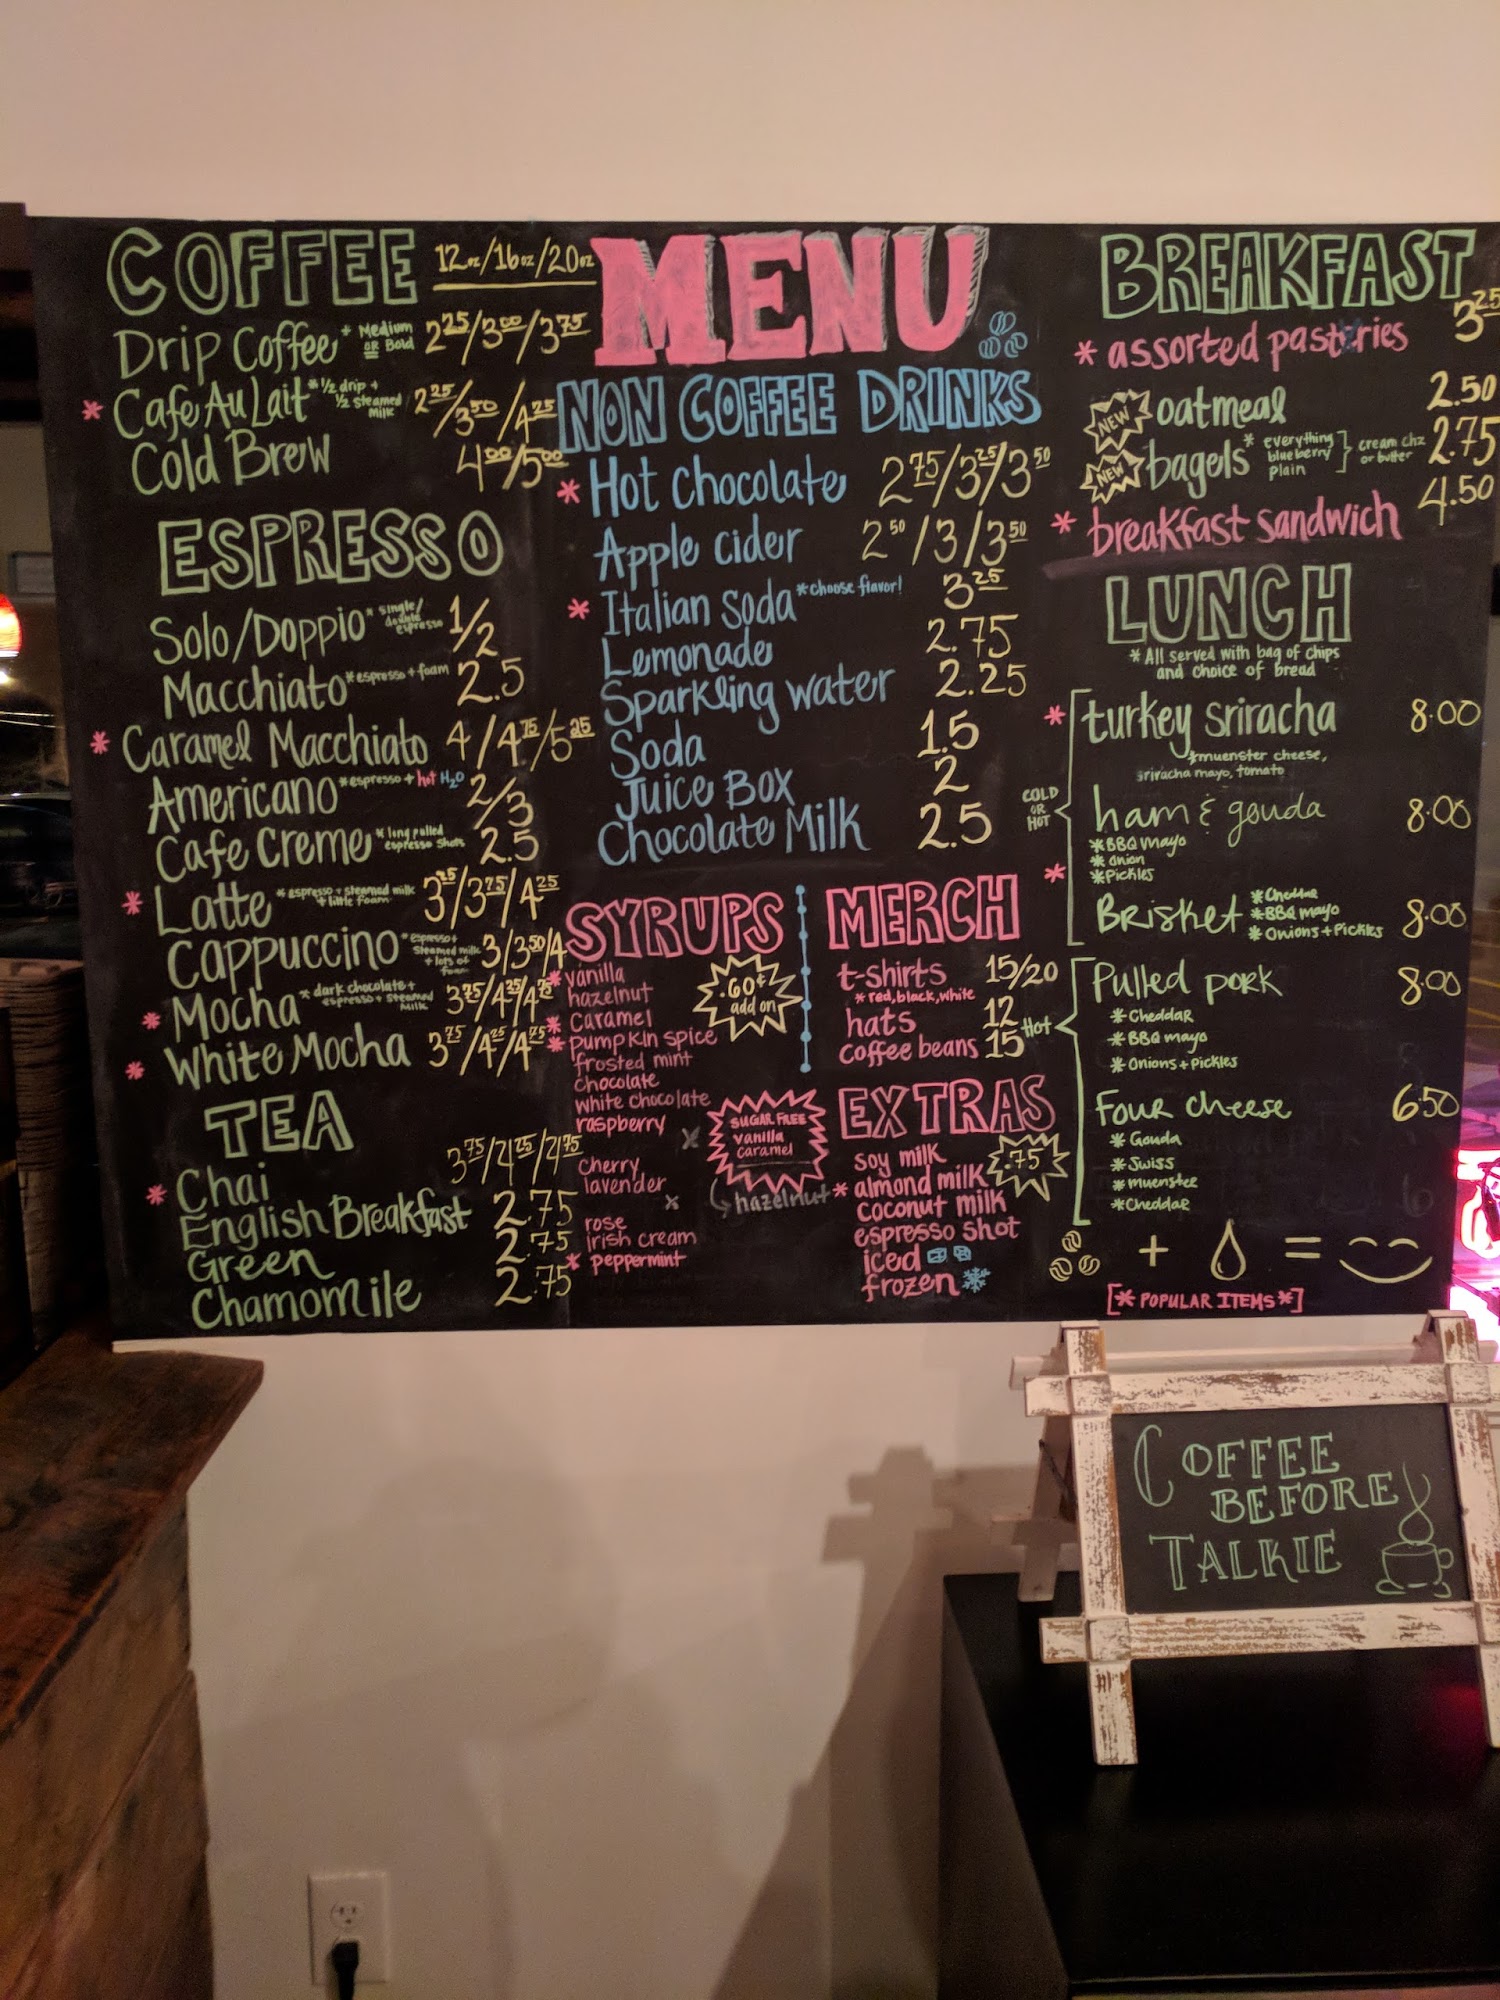 COFFEE 12oz/16oz/20oz
Drip Coffee * Medium OR Bold 2.25/3.00/3.75
* Cafe Au Lait * 1/2 drip + 1/2 steamed milk 2.25/3.50/4.25
Cold Brew 4.00/5.00
ESPRESSO
Solo/Doppio * single/double espresso 1/2
Macchiato * espresso + foam 2.5
* Caramel Macchiato 4/4.75/5.25
Americano * espresso + hot H2O 2/3
Cafe Creme * long pulled espresso shots 2.5
* Latte * espresso + steamed milk + little foam 3.25/3.75/4.25
Cappuccino * espresso + steamed milk + lots of foam 3/3.50/4
* Mocha * dark chocolate + espresso + steamed milk 3.75/4.25/4.75
* White Mocha 3.75/4.25/4.75
TEA
* Chai 3.75/4.25/4.75
English Breakfast 2.75
Green 2.75
Chamomile 2.75
MENU
NON COFFEE DRINKS
* Hot Chocolate 2.75/3.25/3.50
Apple cider 2.50/3/3.50
* Italian Soda * choose flavor! 3.25
Lemonade 2.75
Sparkling water 2.25
Soda 1.5
Juice Box 2
Chocolate Milk 2.5
SYRUPS
.60¢ add on
* vanilla
hazelnut
* caramel
* pumpkin spice
frosted mint
chocolate
white chocolate
raspberry
cherry
lavender
rose
irish cream
* peppermint
SUGAR FREE
vanilla
caramel
hazelnut
MERCH
t-shirts 15/20
* red, black, white
hats 12
coffee beans 15
EXTRAS
.75
soy milk
* almond milk
coconut milk
espresso shot
iced
frozen
BREAKFAST
* assorted pastries 3.25
NEW oatmeal 2.50
NEW bagels * everything blueberry plain } cream chz or butter 2.75
* breakfast sandwich 4.50
LUNCH
* All served with bag of chips
and choice of bread
COLD OR HOT
* turkey sriracha 8.00
* muenster cheese,
sriracha mayo, tomato
ham & gouda 8.00
* BBQ mayo
* onion
* Pickles
* Brisket 8.00
* Cheddar
* BBQ mayo
* Onions + Pickles
Hot
Pulled pork 8.00
* Cheddar
* BBQ mayo
* Onions + Pickles
Four cheese 6.50
* Gouda
* Swiss
* muenster
* Cheddar
+ =
[* POPULAR ITEMS *]
COFFEE
BEFORE
TALKIE